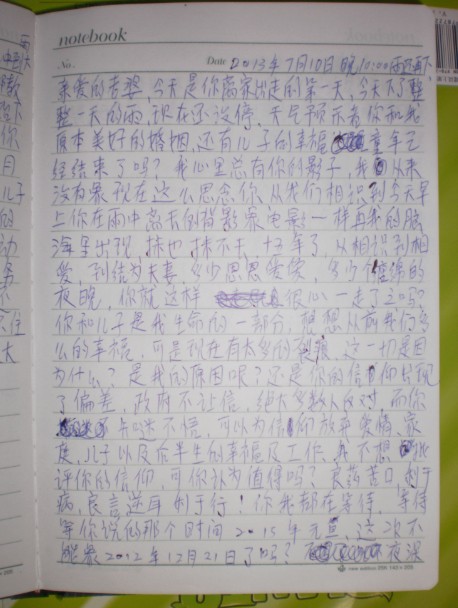 notebook
No.
Date 2013年7月10日晚10:00 雨还再下
亲爱的老婆,今天是你离家出走的第一天,今天下了整
整一天的雨,现在还没停,天气预示着你和我
原本美好的婚姻,还有儿子的幸福童年已
经结束了吗?我心里总有你的影子,我从来
没有象现在这么思念你,从我们相识到今天早
上你在雨中离去的背影象电影一样再我的脑
海里出现,抹也抹不去,十3年了,从相识到相
爱,到结为夫妻,多少恩恩爱爱,多少个缠绵的
夜晚,你就这样很心一走了之吗?
你和儿子是我生命的一部分,想想从前我们多
么的幸福,可是现在有太多的,这一切是因
为什么?是我的原因呢?还是你的信仰出现
了偏差,政府不让信,绝大多数人反对,而你
执迷不悟,可以为信仰放弃爱情、家
庭、儿子以及后半生的幸福及工作,我不想批
评你的信仰,可你认为值得吗?良药苦口利于
病,良言逆耳利于行!你我都在等待,等待
等你说的那个时间2015年元旦,这次不
能象2012年12月21日了吗?夜深